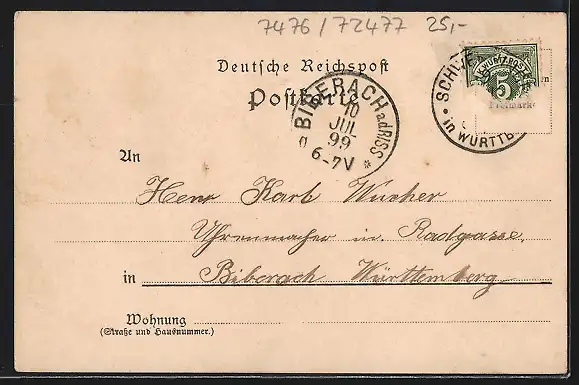 7476/72477 25,-
Deutsche Reichspost
Postkarte
BIBERACH a.d.RISS
10
JUL
99
6-7V
K. WÜRTT. POST
5
Freimarke
in WÜRTTB
An
Herr Karl Wucher
Uhrenmacher in Radgasse
in Biberach Württemberg
Wohnung
(Straße und Hausnummer.)